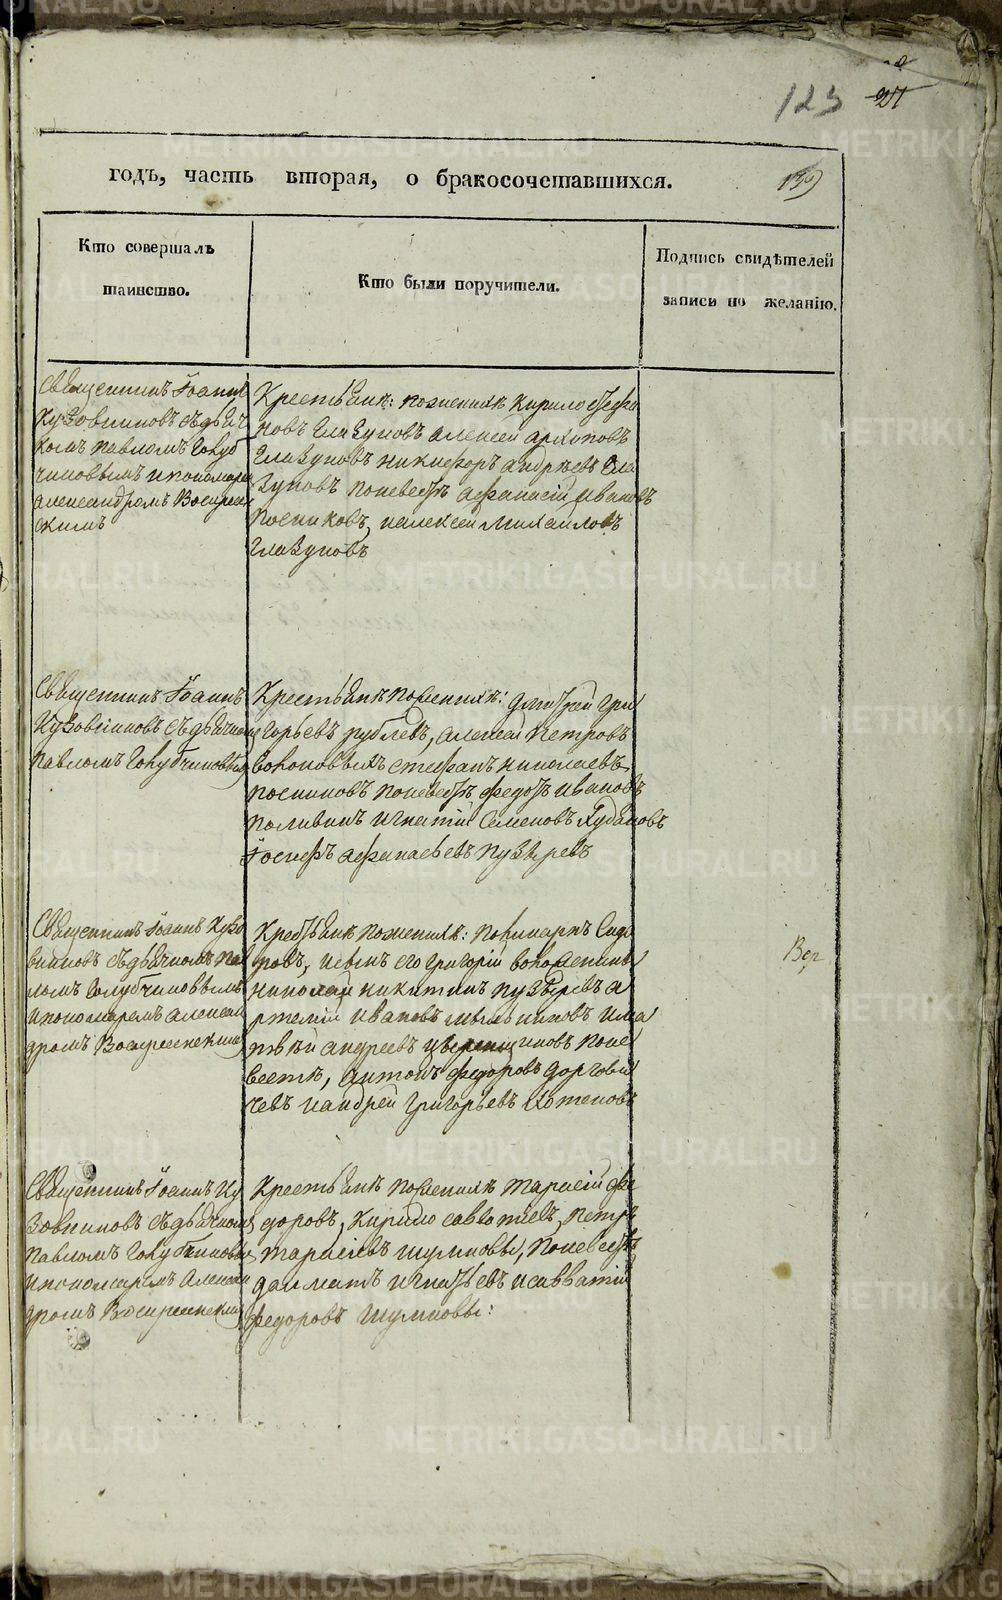 123
годъ, часть вторая, о бракосочетавшихся.
Кто совершалъ
таинство.
Кто были поручители.
Подпись свидѣтелей
записи по желанію.
Священникъ Іоаннъ
Кузовниковъ съ дьяч
комъ Павломъ Голуб
чиковымъ и пономаремъ
Александромъ Воскресен
скимъ
Крестьяне: по женихѣ Кирило
повъ Глазуновъ Алексей Архиповъ
Глазуновъ Никифоръ Андрѣевъ Гла
зуновъ по невестѣ Афанасій Ивановъ
Посниковъ, и Алексей Михайловъ
Глазуновъ
Священникъ Іоаннъ
Кузовниковъ съ дьячкомъ
Павломъ Голубчиковымъ
Крестьяне по женихѣ: Дмитрей Гри
горьевъ Рублевъ, Алексей Петровъ
Стефанъ Николаевъ
Посниковъ по невестѣ Федотъ Ивановъ
Поливинъ Игнатій Семеновъ
Іосифъ Афанасьевъ Пузыревъ
Священникъ Іоаннъ Кузо
вниковъ съ дьячкомъ Пав
ломъ Голубчиковымъ
и пономаремъ Алексан
дромъ Воскресенскимъ
Крестьяне по женихѣ: Поликарпъ Сидо
ровъ, и сынъ его Григорій
Николай Никитинъ Пузыревъ А
ртемій Ивановъ Мыльниковъ и Ма
твѣй Андреевъ по не
вестѣ, Антонъ Федоровъ
чевъ и Андрей Григорьевъ
Вер
Священникъ Іоаннъ Ку
зовниковъ съ дьячкомъ
Павломъ Голубчиковым
и пономаремъ Алексан
дромъ Воскресенским
Крестьяне по женихѣ Тарасій Фе
доровъ, Кирило Савватіевъ, Петръ
Тарасіевъ Шумковы, по невестѣ
Далматъ Игнатьевъ и Савватій
Федоровъ Шумковы:
METRIKI.GASO-URAL.RU